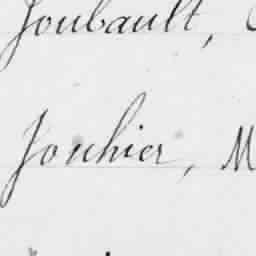 Joubault,
Jouhier, M